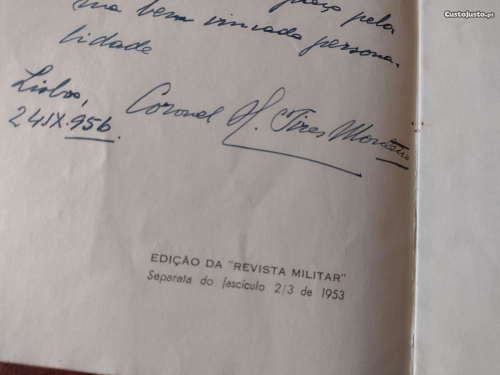 CustoJusto.pt
pela
bem vincada persona-
lidade
Lisboa,
24.IX.956.
Coronel H. Pires Monteiro
EDIÇÃO DA "REVISTA MILITAR"
Separata do fascículo 2/3 de 1953